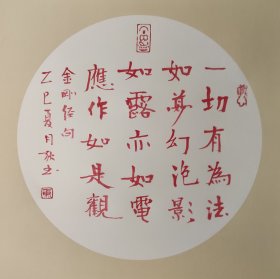 一切有為法
如夢幻泡影
如露亦如電
應作如是觀
金剛经句
乙巳夏月